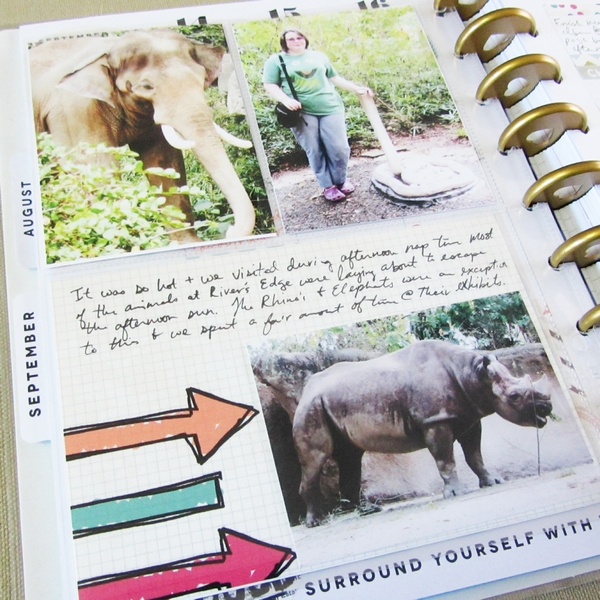 SEPTEMBER
AUGUST
SEPTEMBER
It was so hot + we visited during afternoon nap time. Most
of the animals at River's Edge were laying about to escape
the afternoon sun. The Rhino's + Elephants were an exception
to this & we spent a fair amount of time @ Their Exhibits.
SURROUND YOURSELF WITH